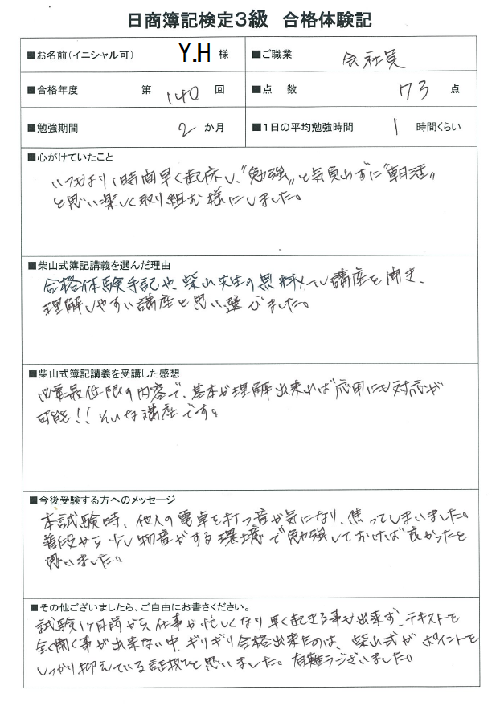 日商簿記検定3級 合格体験記
■お名前(イニシャル可) Y.H 様 ■ご職業 会社員
■合格年度 第 140 回 ■点 数 73 点
■勉強期間 2 か月 ■1日の平均勉強時間 1 時間くらい
■心がけていたこと
いつもより1時間早く起床し、"勉強"と気負わずに"朝活"
と思い楽しく取り組む様にしました。
■柴山式簿記講義を選んだ理由
合格体験手記や柴山先生の無料 講座を聞き、
理解しやすい講座と思い選びました。
■柴山式簿記講義を受講した感想
必要最低限の内容で、基本が理解出来れば応用にも対応が
可能!! そんな講座です。
■今後受験する方へのメッセージ
本試験時、他人の電卓を打つ音が気になり、焦ってしまいました。
普段から少し物音がする環境で勉強しておけば良かったと
思いました。
■その他ございましたら、ご自由にお書きください。
試験1ヶ月前から仕事が忙しくなり早く起きる事も出来ず、テキストを
全く開く事が出来ない中、ギリギリ合格出来たのは、柴山式がポイントを
しっかり抑えている証拠だと思いました。有難うございました。